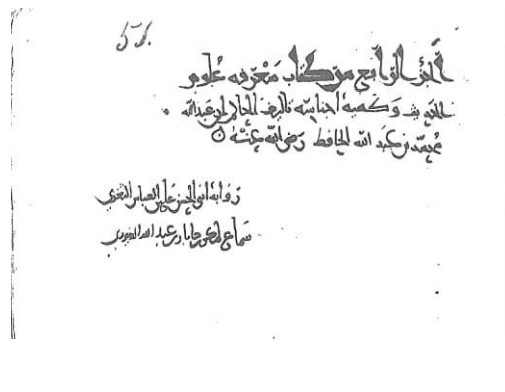 الجزء الرابع من كتاب معرفة علوم
الحديث وكمية أجناسه تأليف الحاكم أبي عبد الله
محمد بن عبد الله الحافظ رضي الله عنه
رواية أبي الحسن علي بن العباس
سماع بن عبد الله